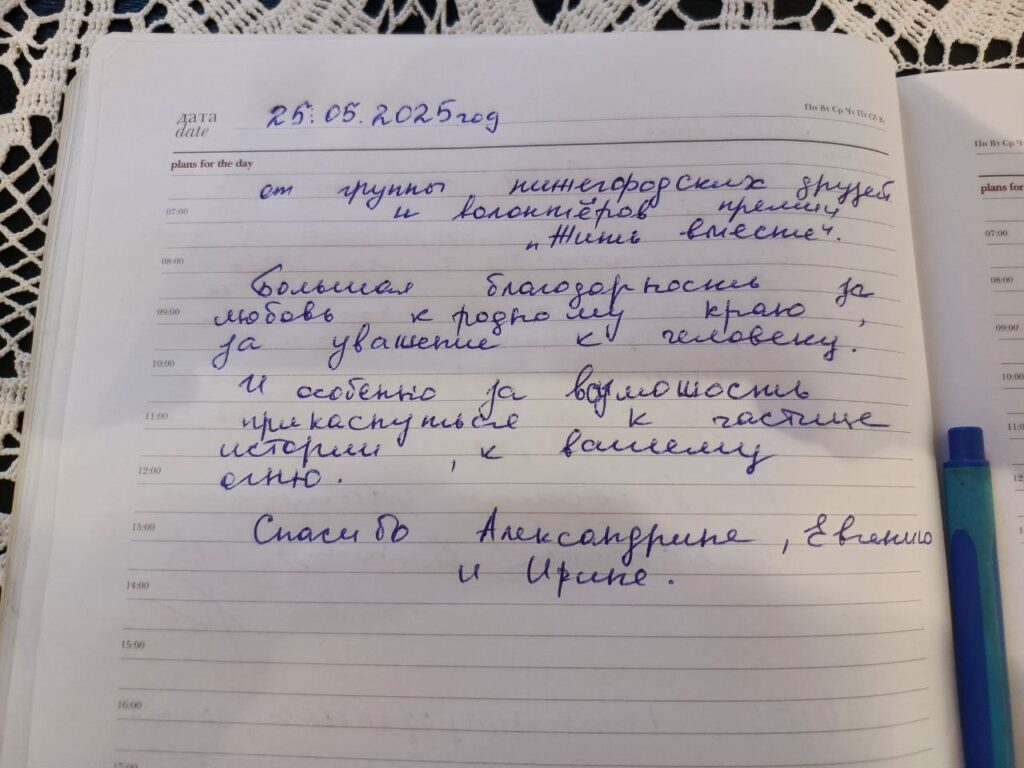 дата 25.05.2025 год
date
Пн Вт Ср Чт Пт Сб Вс
plans for the day
от группы нижегородских друзей
07:00
и волонтёров премии
"Жить вместе".
08:00
Большая благодарность за
09:00
любовь к родному краю,
за уважение к человеку.
10:00
И особенно за возможость
11:00
прикаснуться к частице
истории, к вашему
12:00
огню.
13:00
Спасибо Александрине, Евгению
и Ирине.
14:00
15:00
16:00
17:00
Пн Вт Ср Ч
plans for
07:00
08:00
09:00
10:00
11:0
12: